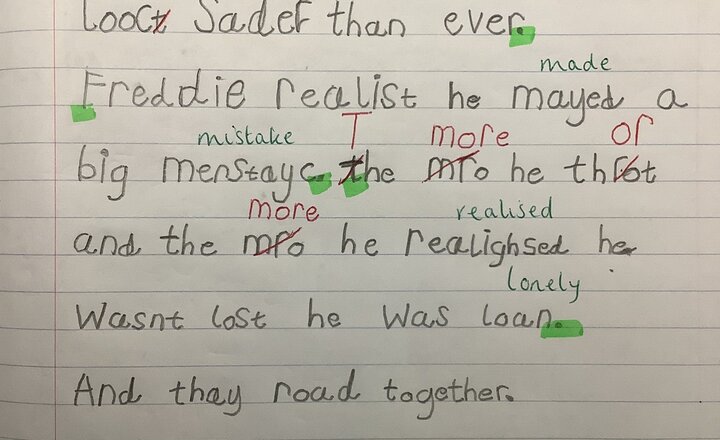 looct Sader than ever.
made
Freddie realist he mayed a
mistake T more or
big menstayc. the mro he throt
more realised
and the mro he realighsed he
lonely
Wasnt lost he was loan.
And thay road together.